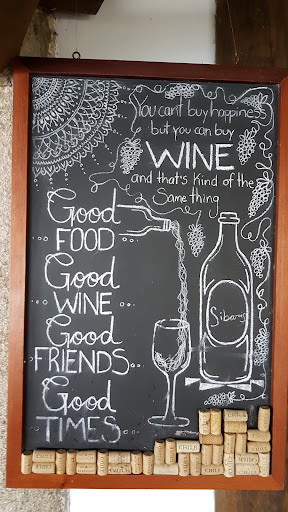 You can't buy happiness
but you can buy
WINE
and that's kind of the
Same thing
Good
FOOD
Good
WINE
Good
FRIENDS
Good
TIMES
CHILE
CHILE
CHILE